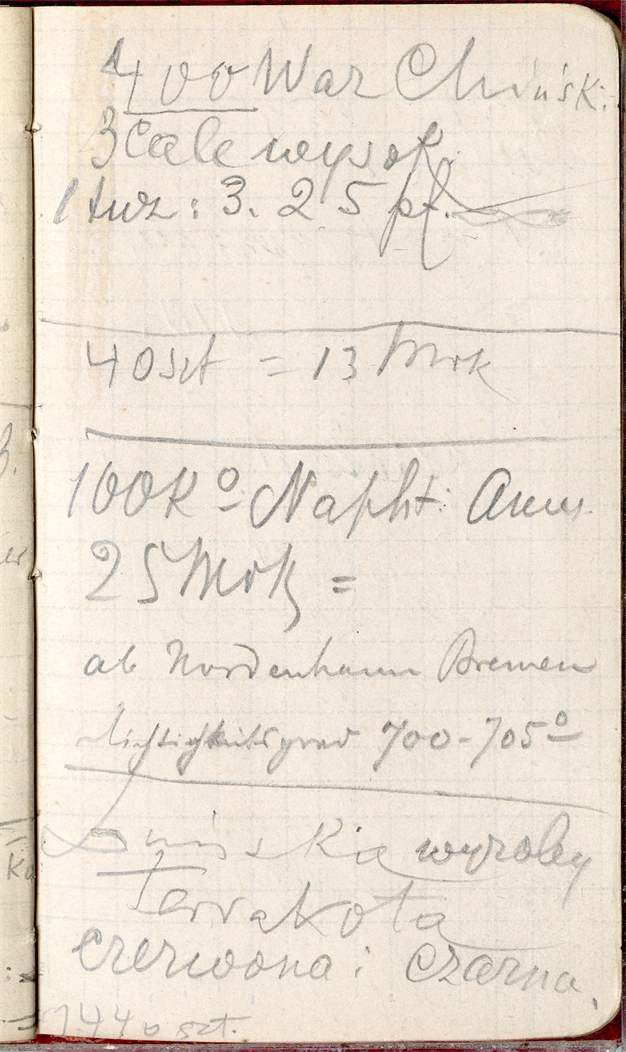 400 Waz Chińsk:
3 cale wysok.
1 tuz: 3.25 pf.
40 szt = 13 Mrk
100 K⁰: Napht: Amer.
25 Mrk =
ab Nordenhamm Bremen
700-705⁰
wyroby
Terrakota
czerwona i czarna.
1440 szt.